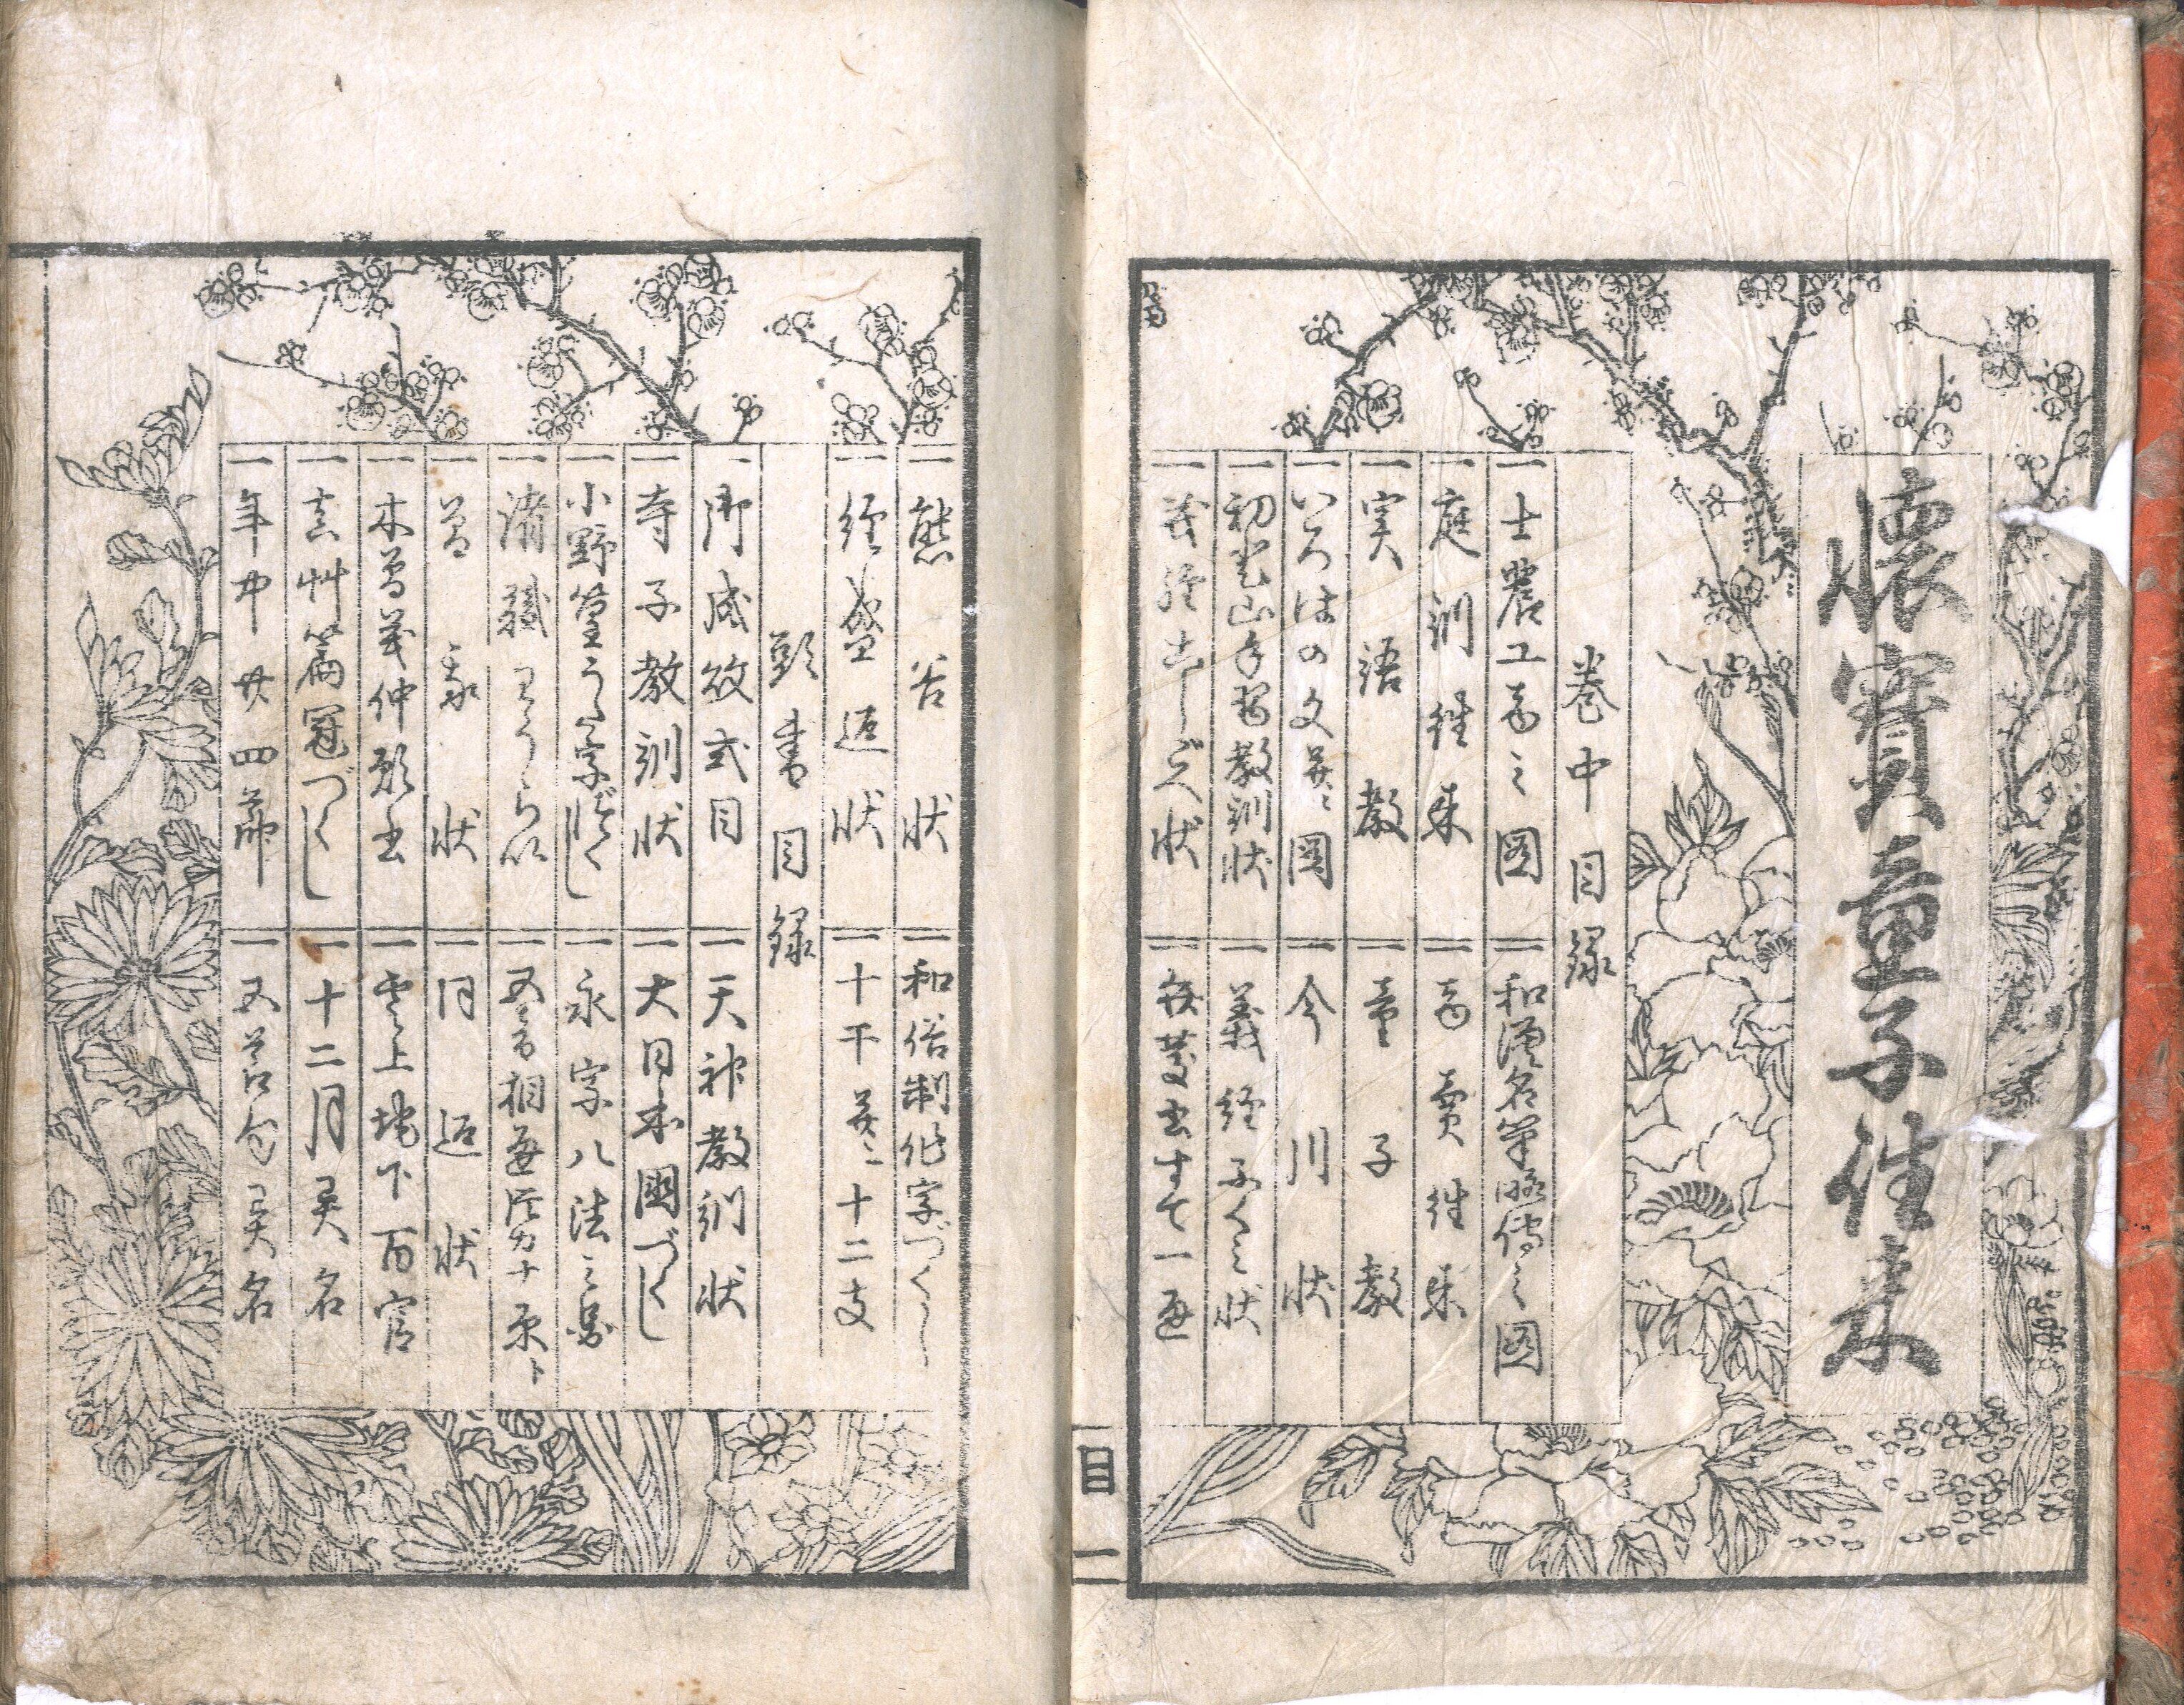 懐寳童子往来
巻中目録
一士農工商之図
一和漢名筆略傳之図
一庭訓往来
一商賣往来
一実語教
一童子教
一いろはの文并ニ図
一今川状
一初登山手習教訓状
一義経ふくミ状
一義経こしごへ状
一弁慶書すて一通
一熊谷状
一和俗制作字づくし
一経盛返状
一十干并ニ十二支
頭書目録
一御成敗式目
一天神教訓状
一寺子教訓状
一大日本国づくし
一小野篁うた字づくし
一永字八法之
一潅頂
一相
一状
一同返状
一木曽義仲願書
一雲上地下百官
一艸篇冠づくし
一十二月異名
一年中廿四節
一五節句異名
目一